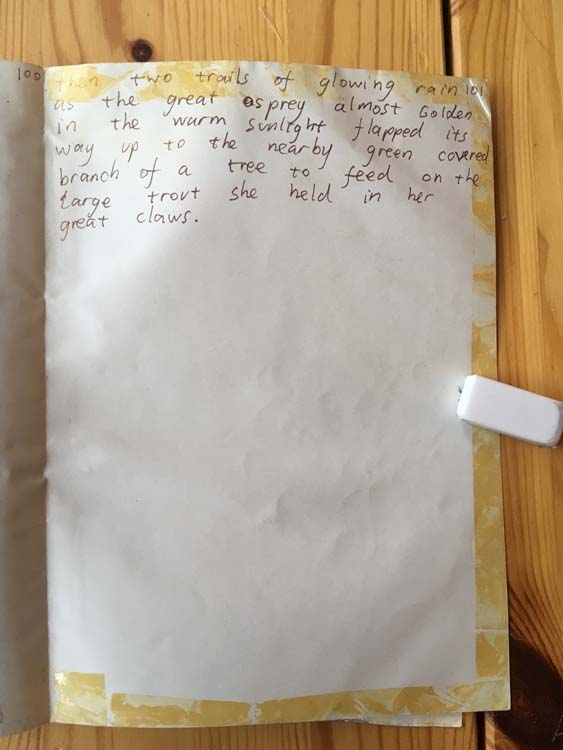 100
then two trails of glowing rain 101
as the great osprey almost Golden
in the warm sunlight flapped its
way up to the nearby green covered
branch of a tree to feed on the
Large trout she held in her
great claws.